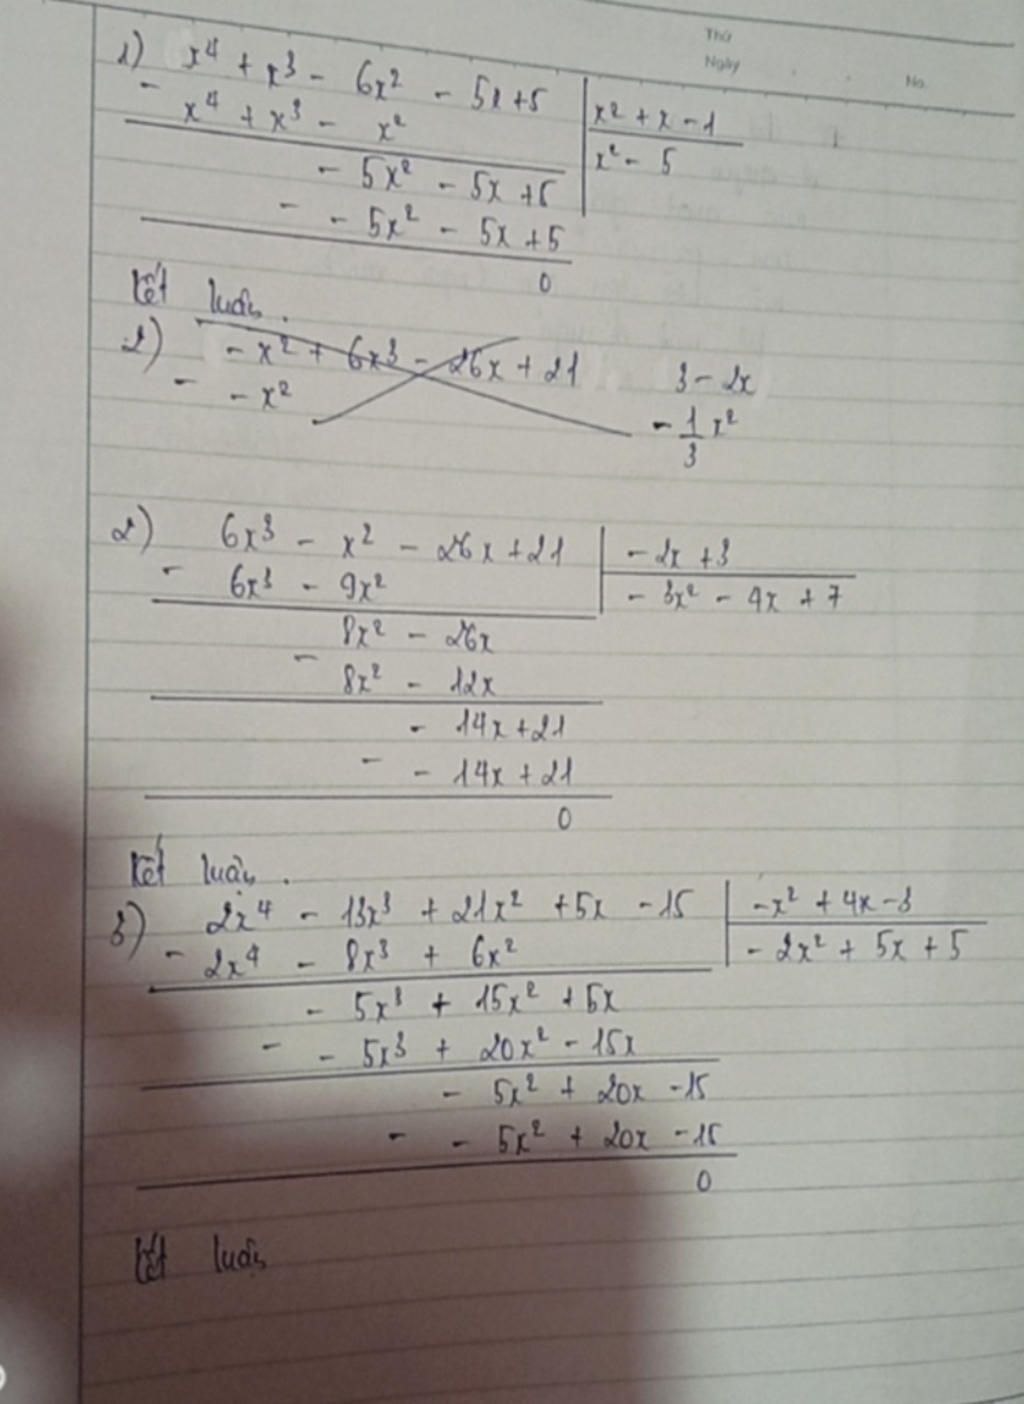 Thứ
Ngày
No.
1) x⁴ + x³ - 6x² - 5x + 5 | x² + x - 1
- x⁴ + x³ - x² | x² - 5
- 5x² - 5x + 5
- - 5x² - 5x + 5
0
Kết luận.
2) - x² + 6x³ - 26x + 21 3 - 2x
- - x² - 1/3 x²
2) 6x³ - x² - 26x + 21 | - 2x + 3
- 6x³ - 9x² | - 3x² - 4x + 7
8x² - 26x
- 8x² - 12x
- 14x + 21
- - 14x + 21
0
Kết luận.
3) 2x⁴ - 13x³ + 21x² + 5x - 15 | -x² + 4x - 3
- 2x⁴ - 8x³ + 6x² | - 2x² + 5x + 5
- 5x³ + 15x² + 5x
- - 5x³ + 20x² - 15x
- 5x² + 20x - 15
- - 5x² + 20x - 15
0
Kết luận